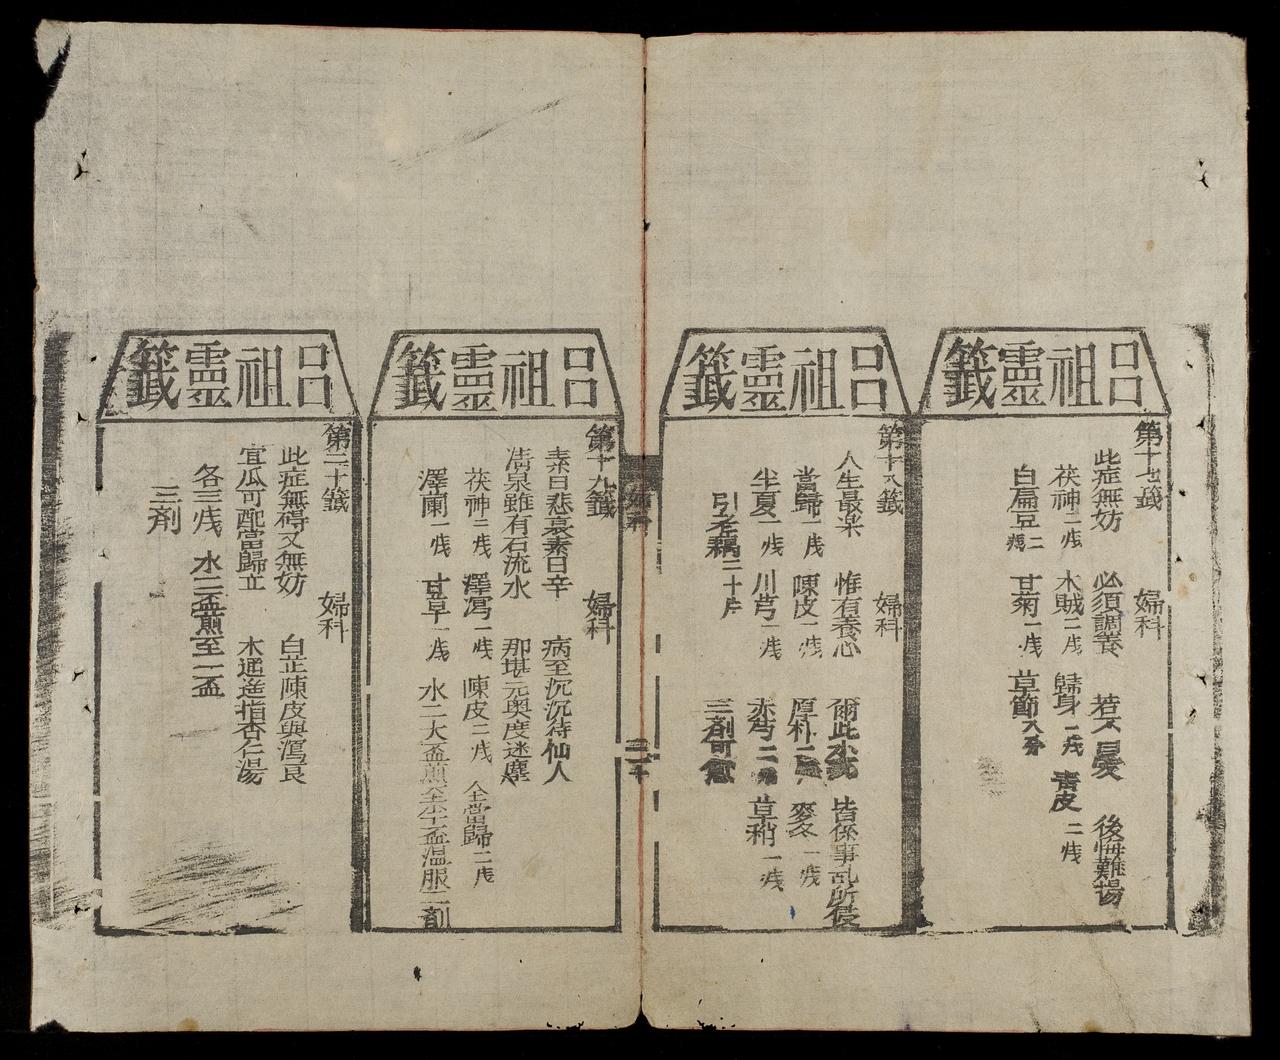 呂祖靈籤
第十七籤　婦科
此症無妨　必須調養　若不　後悔難揚
茯神二戋　木賊二戋　歸身一戋　青皮二戋
白扁豆二戋　甘菊一戋　草節八分
呂祖靈籤
第十八籤　婦科
人生最楽　惟有養心　爾此　皆係事乱所侵
當歸一戋　陳皮一戋　厚朴二　麥冬一戋
半夏一戋　川芎一戋　赤芍二　草稍一戋
引　藕二十片　三剤可愈
婦科
呂祖靈籤
第十九籤　婦科
素曰悲哀素曰辛　病至沉沉待仙人
清泉雖有石流水　那堪元奥度迷塵
茯神二戋　澤瀉一戋　陳皮二戋　全當歸二戋
澤蘭一戋　甘草一戋　水二大盃煎至盃温服二剤
呂祖靈籤
第二十籤　婦科
此症無碍又無妨　白芷陳皮與瀉良
宜瓜可配當歸立　木通進指杏仁湯
各三戋　水三盃煎至一盃
三剤